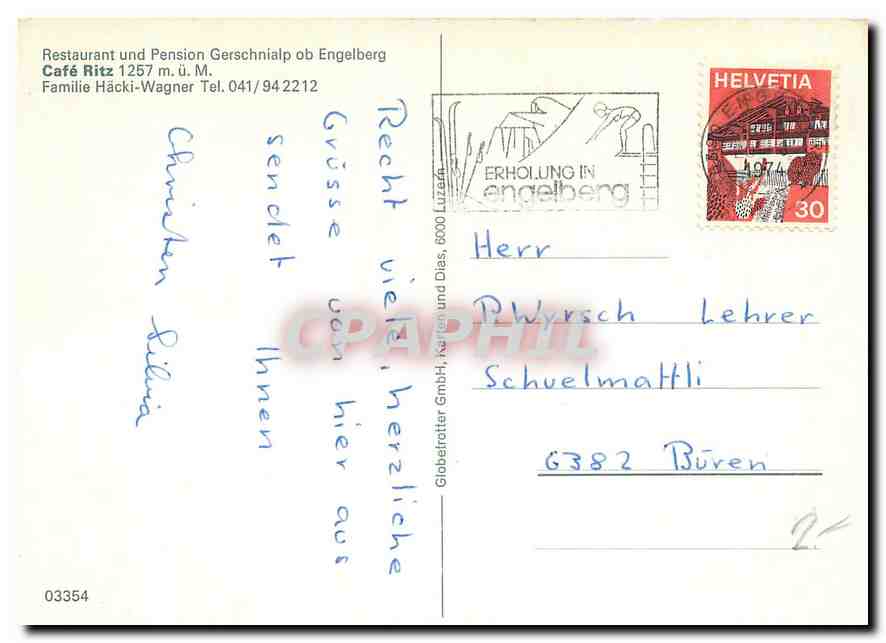 Restaurant und Pension Gerschnialp ob Engelberg
Café Ritz 1257 m. ü. M.
Familie Häcki-Wagner Tel. 041/94 22 12
Recht viele, herzliche
Grüsse von hier aus
sendet Ihnen
Christen Silvia
Globetrotter GmbH, Karten und Dias, 6000 Luzern
ERHOLUNG IN
engelberg
HELVETIA
1974
30
Herr
P. Wyrsch Lehrer
Schuelmattli
6382 Büren
2.-
03354
CPAPHIL